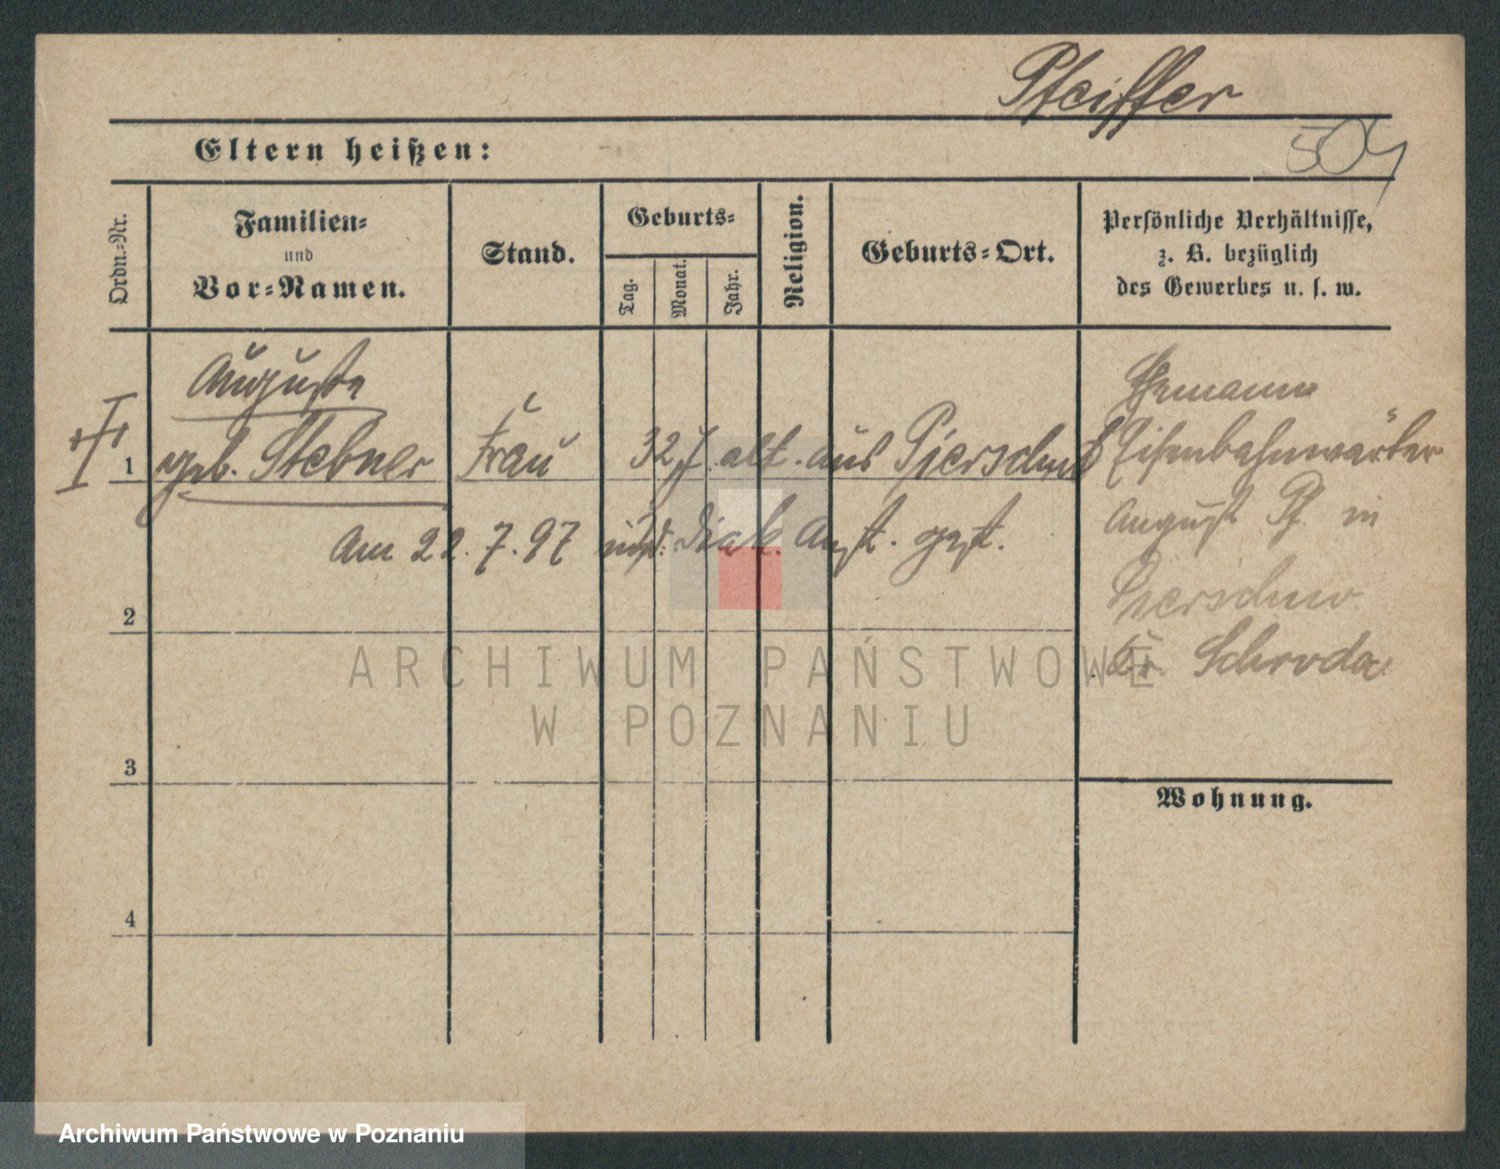 Pfeiffer
504
Eltern heißen:
Ordn.-Nr.
Familien-
und
Vor-Namen.
Stand.
Geburts-
Tag.
Monat.
Jahr.
Religion.
Geburts-Ort.
Persönliche Verhältnisse,
z. B. bezüglich
des Gewerbes u. s. w.
Auguste
1 geb. Stebner Frau 32 J. alt. aus
Am 22.7.97 Diak. Anst. gest.
Ehemann
Eisenbahnwärter
August Pf. in
Kr. Schroda
2
3
4
Wohnung.
ARCHIWUM PAŃSTWOWE
W POZNANIU
Archiwum Państwowe w Poznaniu